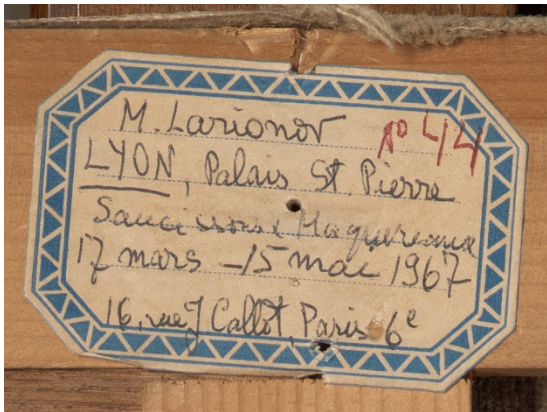 M. Larionov
N° 44
LYON, Palais St. Pierre
Saucissons & Maquereaux
17 mars - 15 mai 1967
16, rue J Callot, Paris 6e